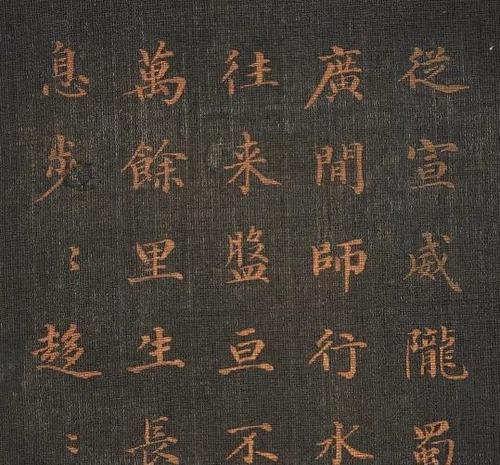 從宣威隴蜀
廣閒師行水
往来盤亘不
萬餘里生長
息步〻趍〻